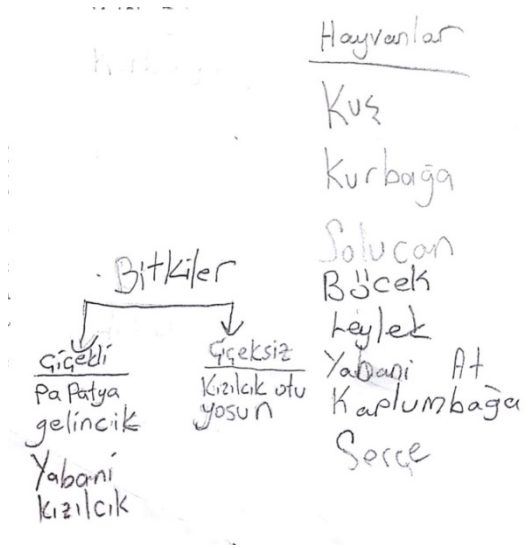 Hayvanlar
Kuş
Kurbağa
Solucan
Böcek
Leylek
Yabani At
Kaplumbağa
Serçe
Bitkiler
Çiçekli
Papatya
gelincik
Yabani
kızılcık
Çiçeksiz
Kızılcık otu
yosun